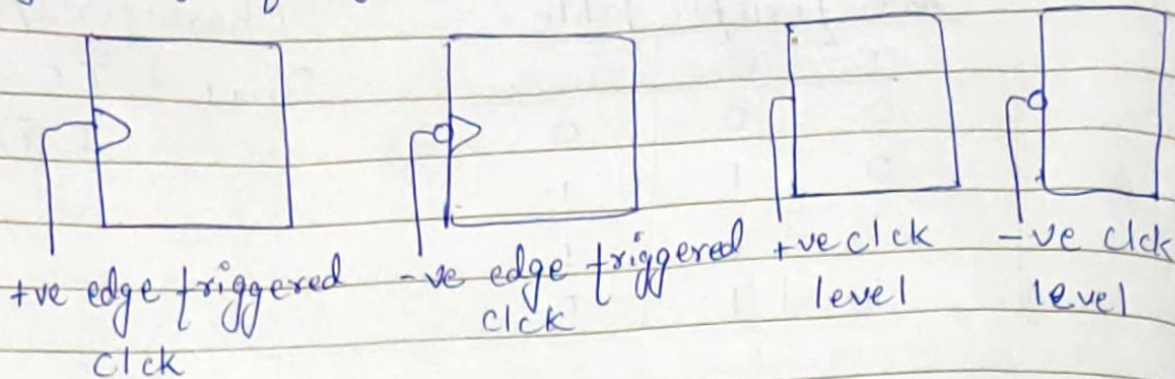 +ve edge triggered
clck
-ve edge triggered
clck
+ve clck
level
-ve clck
level